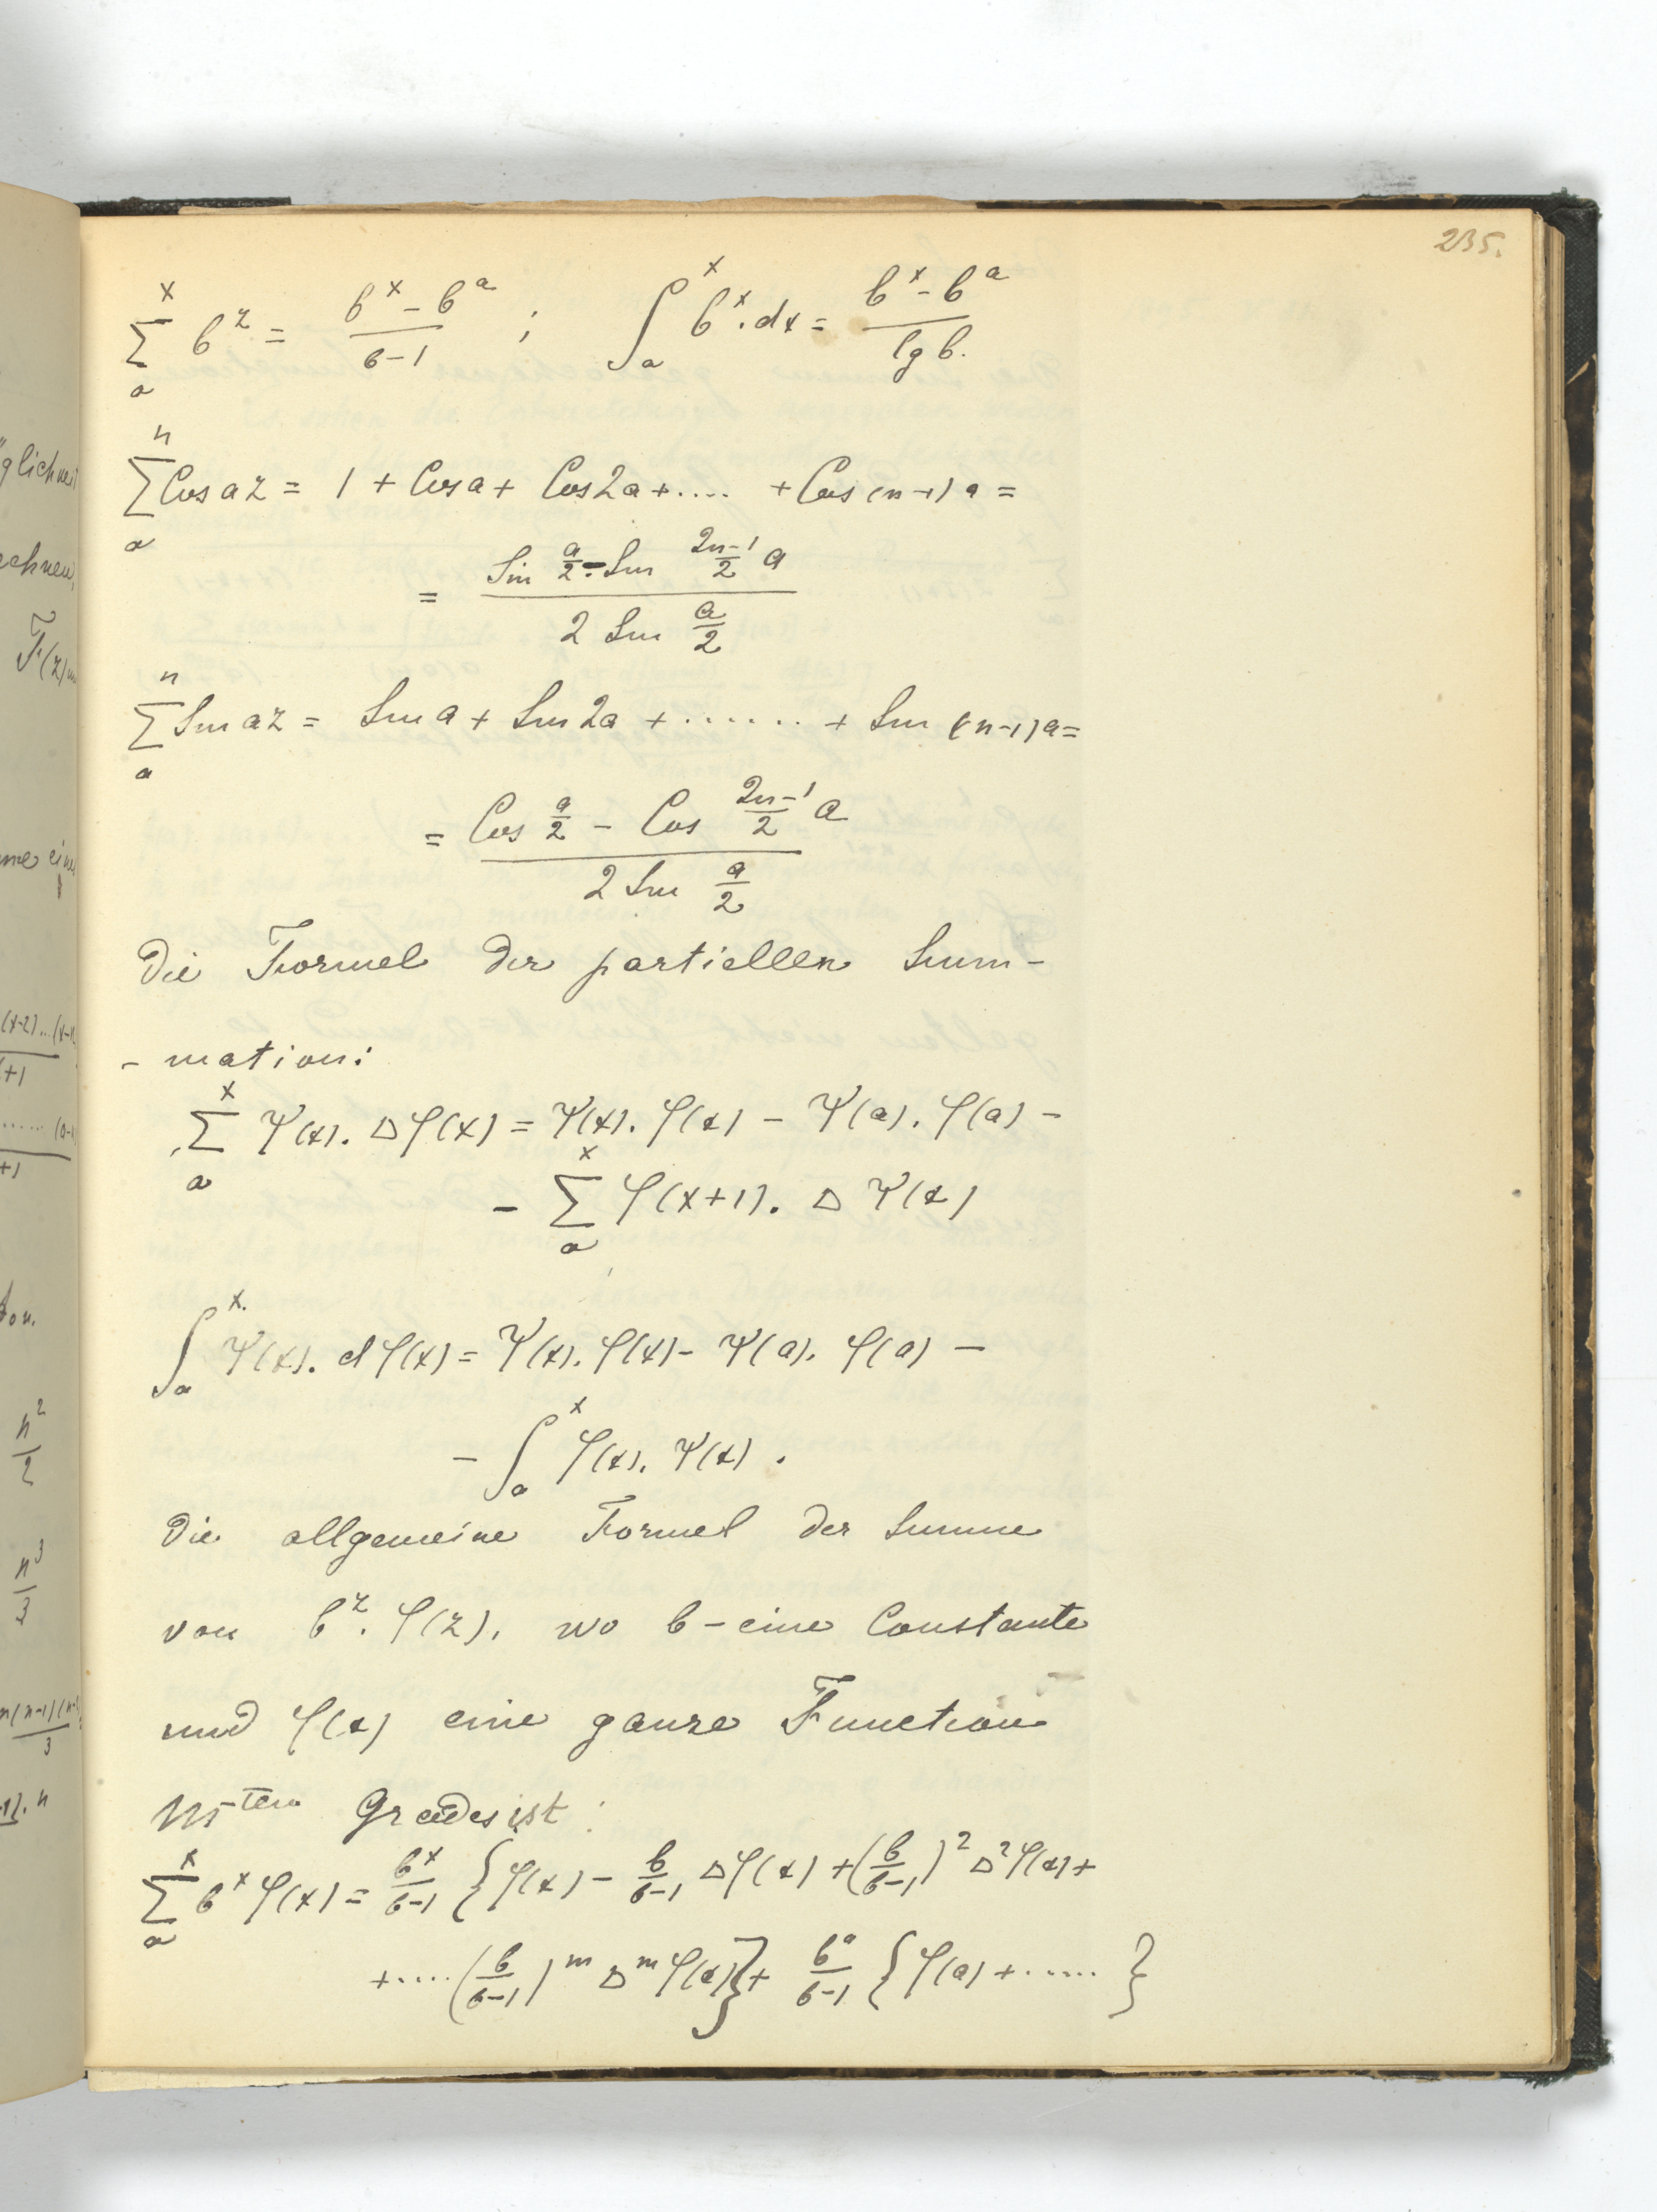 235.
$\sum_a^x b^z = \frac{b^x - b^a}{b-1}$ ; $\int_a^x b^x . dx = \frac{b^x - b^a}{lg b.}$
$\sum_a^n Cos az = 1 + Cos a + Cos 2a + .... + Cos (n-1) a =$
$= \frac{Sin \frac{a}{2} - Sin \frac{2n-1}{2} a}{2 Sin \frac{a}{2}}$
$\sum_a^n Sin az = Sin a + Sin 2a + ....... + Sin (n-1) a =$
$= \frac{Cos \frac{a}{2} - Cos \frac{2n-1}{2} a}{2 Sin \frac{a}{2}}$
Die Formel der partiellen Sum-
- mation:
$\sum_a^x \Psi(x) . \Delta \varphi(x) = \Psi(x) . \varphi(x) - \Psi(a) . \varphi(a) -$
$- \sum_a^x \varphi(x+1) . \Delta \Psi(x)$
$\int_a^x \Psi(x) . d\varphi(x) = \Psi(x) . \varphi(x) - \Psi(a) . \varphi(a) -$
$- \int_a^x \varphi(x) . \Psi(x) .$
Die allgemeine Formel der Summe
von $b^z . \varphi(z)$, wo b - eine Constante
und $\varphi(x)$ eine ganze Function
m-ten Grades ist :
$\sum_a^x b^x \varphi(x) = \frac{b^x}{b-1} \{ \varphi(x) - \frac{b}{b-1} \Delta \varphi(x) + (\frac{b}{b-1})^2 \Delta^2 \varphi(x) +$
$+ ..... (\frac{b}{b-1})^m \Delta^m \varphi(x) \} + \frac{b^a}{b-1} \{ \varphi(a) + ...... \}$